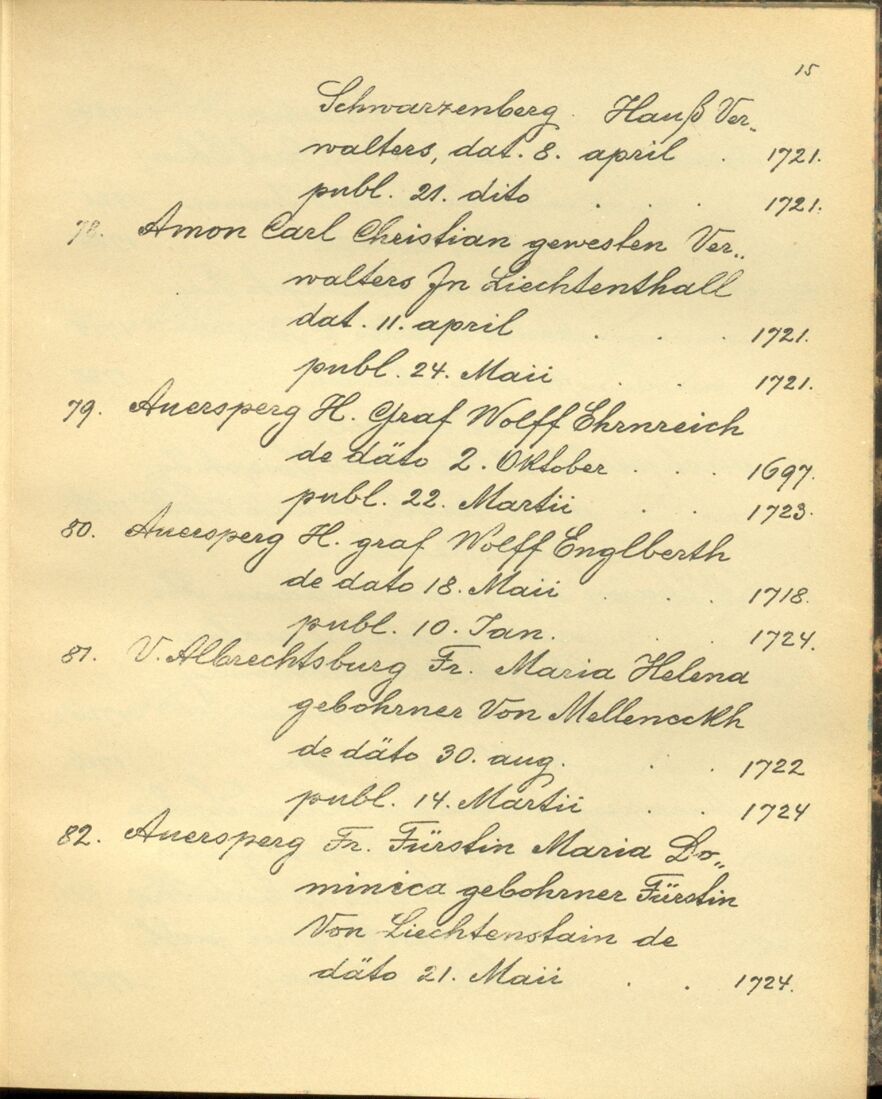 15
Schwarzenberg. Hauß Ver„
walters, dat. 8. april . 1721.
publ. 21. dito . . . 1721.
78. Amon Carl Christian gewesten Ver„
walters Jn Liechtenthall
dat. 11. april . . . 1721.
publ. 24. Maii . . 1721.
79. Auersperg H. Graf Wolff Ehrnreich
de däto 2. Oktober . . . 1697.
publ. 22. Martii . . 1723.
80. Auersperg H. graf Wolff Englberth
de dato 18. Maii . . . 1718.
publ. 10. Jan. . . 1724.
81. V. Albrechtsburg Fr. Maria Helena
gebohrner Von Melleneckh
de däto 30. aug. . . 1722
publ. 14. Martii . . 1724
82. Auersperg Fr. Fürstin Maria Do„
minica gebohrner Fürstin
Von Liechtenstain de
däto 21. Maii . . 1724.